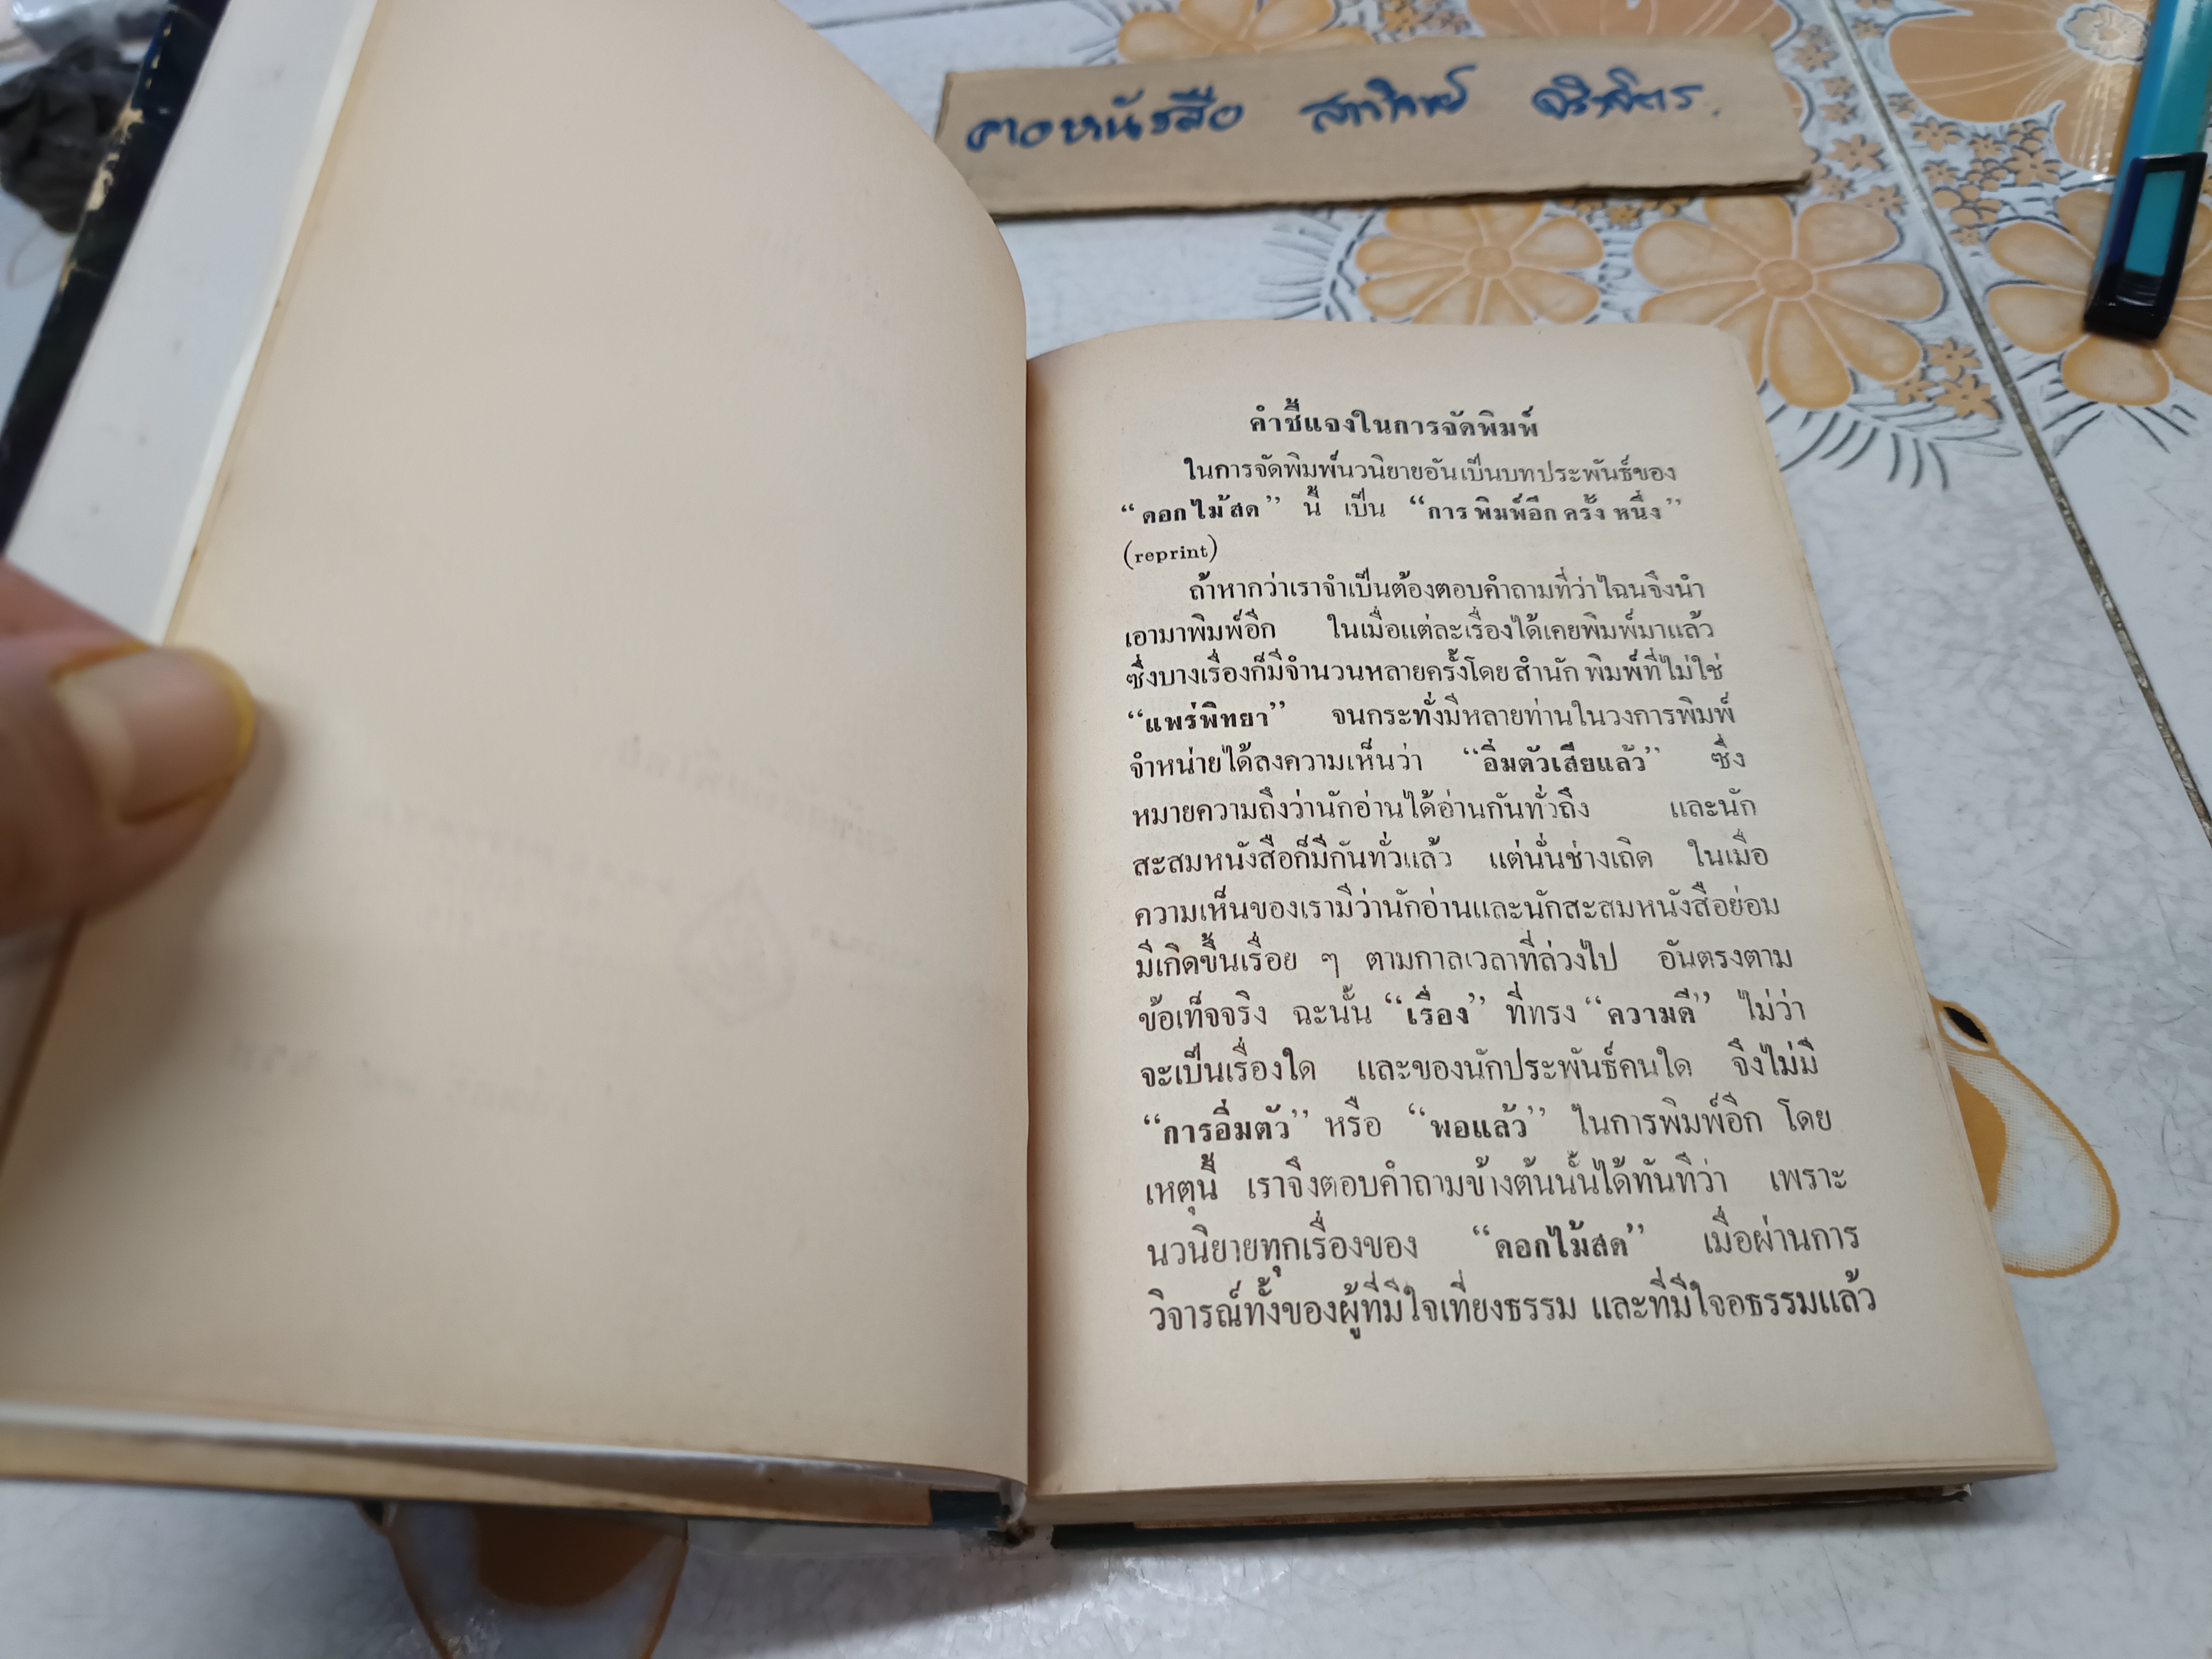 คำชี้แจงในการจัดพิมพ์
ในการจัดพิมพ์นวนิยายอันเป็นบทประพันธ์ของ
“ดอกไม้สด” นี้ เป็น “การพิมพ์อีกครั้งหนึ่ง”
(reprint)
ถ้าหากว่าเราจำเป็นต้องตอบคำถามที่ว่าไฉนจึงนำ
เอามาพิมพ์อีก ในเมื่อแต่ละเรื่องได้เคยพิมพ์มาแล้ว
ซึ่งบางเรื่องก็มีจำนวนหลายครั้งโดยสำนักพิมพ์ที่ไม่ใช่
“แพร่พิทยา” จนกระทั่งมีหลายท่านในวงการพิมพ์
จำหน่ายได้ลงความเห็นว่า “อิ่มตัวเสียแล้ว” ซึ่ง
หมายความถึงว่านักอ่านได้อ่านกันทั่วถึง และนัก
สะสมหนังสือก็มีกันทั่วแล้ว แต่นั่นช่างเถิด ในเมื่อ
ความเห็นของเรามีว่านักอ่านและนักสะสมหนังสือย่อม
มีเกิดขึ้นเรื่อย ๆ ตามกาลเวลาที่ล่วงไป อันตรงตาม
ข้อเท็จจริง ฉะนั้น “เรื่อง” ที่ทรง “ความดี” ไม่ว่า
จะเป็นเรื่องใด และของนักประพันธ์คนใด จึงไม่มี
“การอิ่มตัว” หรือ “พอแล้ว” ในการพิมพ์อีก โดย
เหตุนี้ เราจึงตอบคำถามข้างต้นนั้นได้ทันทีว่า เพราะ
นวนิยายทุกเรื่องของ “ดอกไม้สด” เมื่อผ่านการ
วิจารณ์ทั้งของผู้ที่มีใจเที่ยงธรรม และที่มีใจอธรรมแล้ว